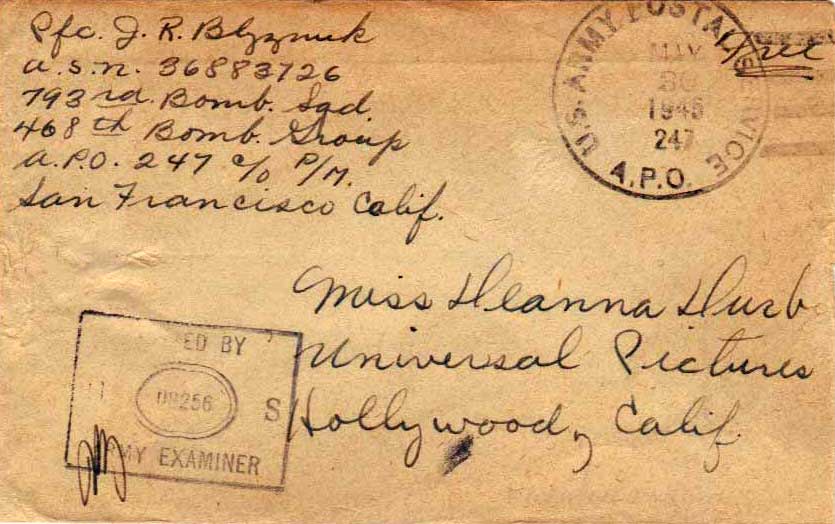 Pfc. J. R. Blyznuk
a.S.n. 36883726
793rd Bomb. Sqd
468th Bomb. Group
a.P.O. 247 c/o P/M.
San Francisco Calif.
U.S. ARMY POSTAL SERVICE
MAY
30
1945
247
A.P.O.
Free
Miss Deanna Durb
Universal Pictures
Hollywood, Calif.
ED BY
S
ARMY EXAMINER